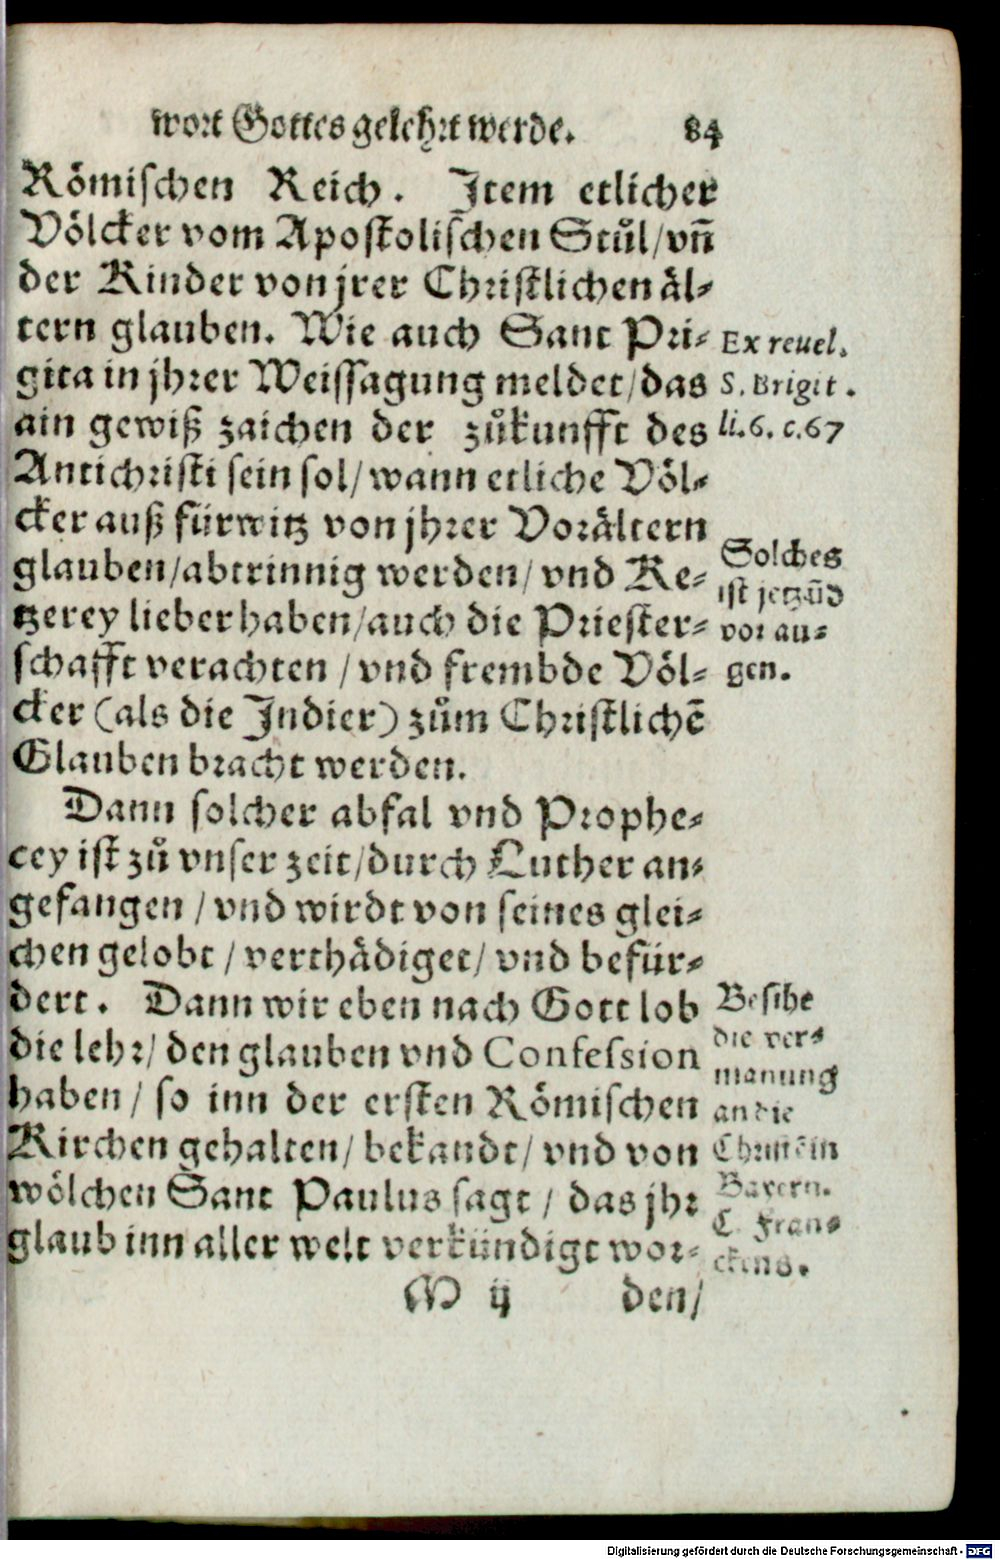 wort Gottes gelehrt werde. 84
Römischen Reich. Item etlicher
Völcker vom Apostolischen Stůl/vñ
der Kinder von jrer Christlichen äl-
tern glauben. Wie auch Sant Pri-
gita in jhrer Weissagung meldet/das
ain gewiß zaichen der zůkunfft des
Antichristi sein sol/wann etliche Völ-
cker auß fürwitz von jhrer Vorältern
glauben/abtrinnig werden/vnd Ke-
tzerey lieber haben/auch die Priester-
schafft verachten/vnd frembde Völ-
cker (als die Indier) zům Christlichē
Glauben bracht werden.
Dann solcher abfal vnd Prophe-
cey ist zů vnser zeit/durch Luther an-
gefangen/vnd wirdt von seines glei-
chen gelobt/verthädiget/vnd befür-
dert. Dann wir eben nach Gott lob
die lehr/den glauben vnd Confession
haben/so inn der ersten Römischen
Kirchen gehalten/bekandt/vnd von
wölchen Sant Paulus sagt/das jhr
glaub inn aller welt verkündigt wor-
M ij den/
Ex reuel.
S. Brigit.
li.6. c.67
Solches
ist jetzūd
vor au-
gen.
Besihe
die ver-
manung
an die
Bayern.
C. Fran-
ckens.
Digitalisierung gefördert durch die Deutsche Forschungsgemeinschaft - DFG